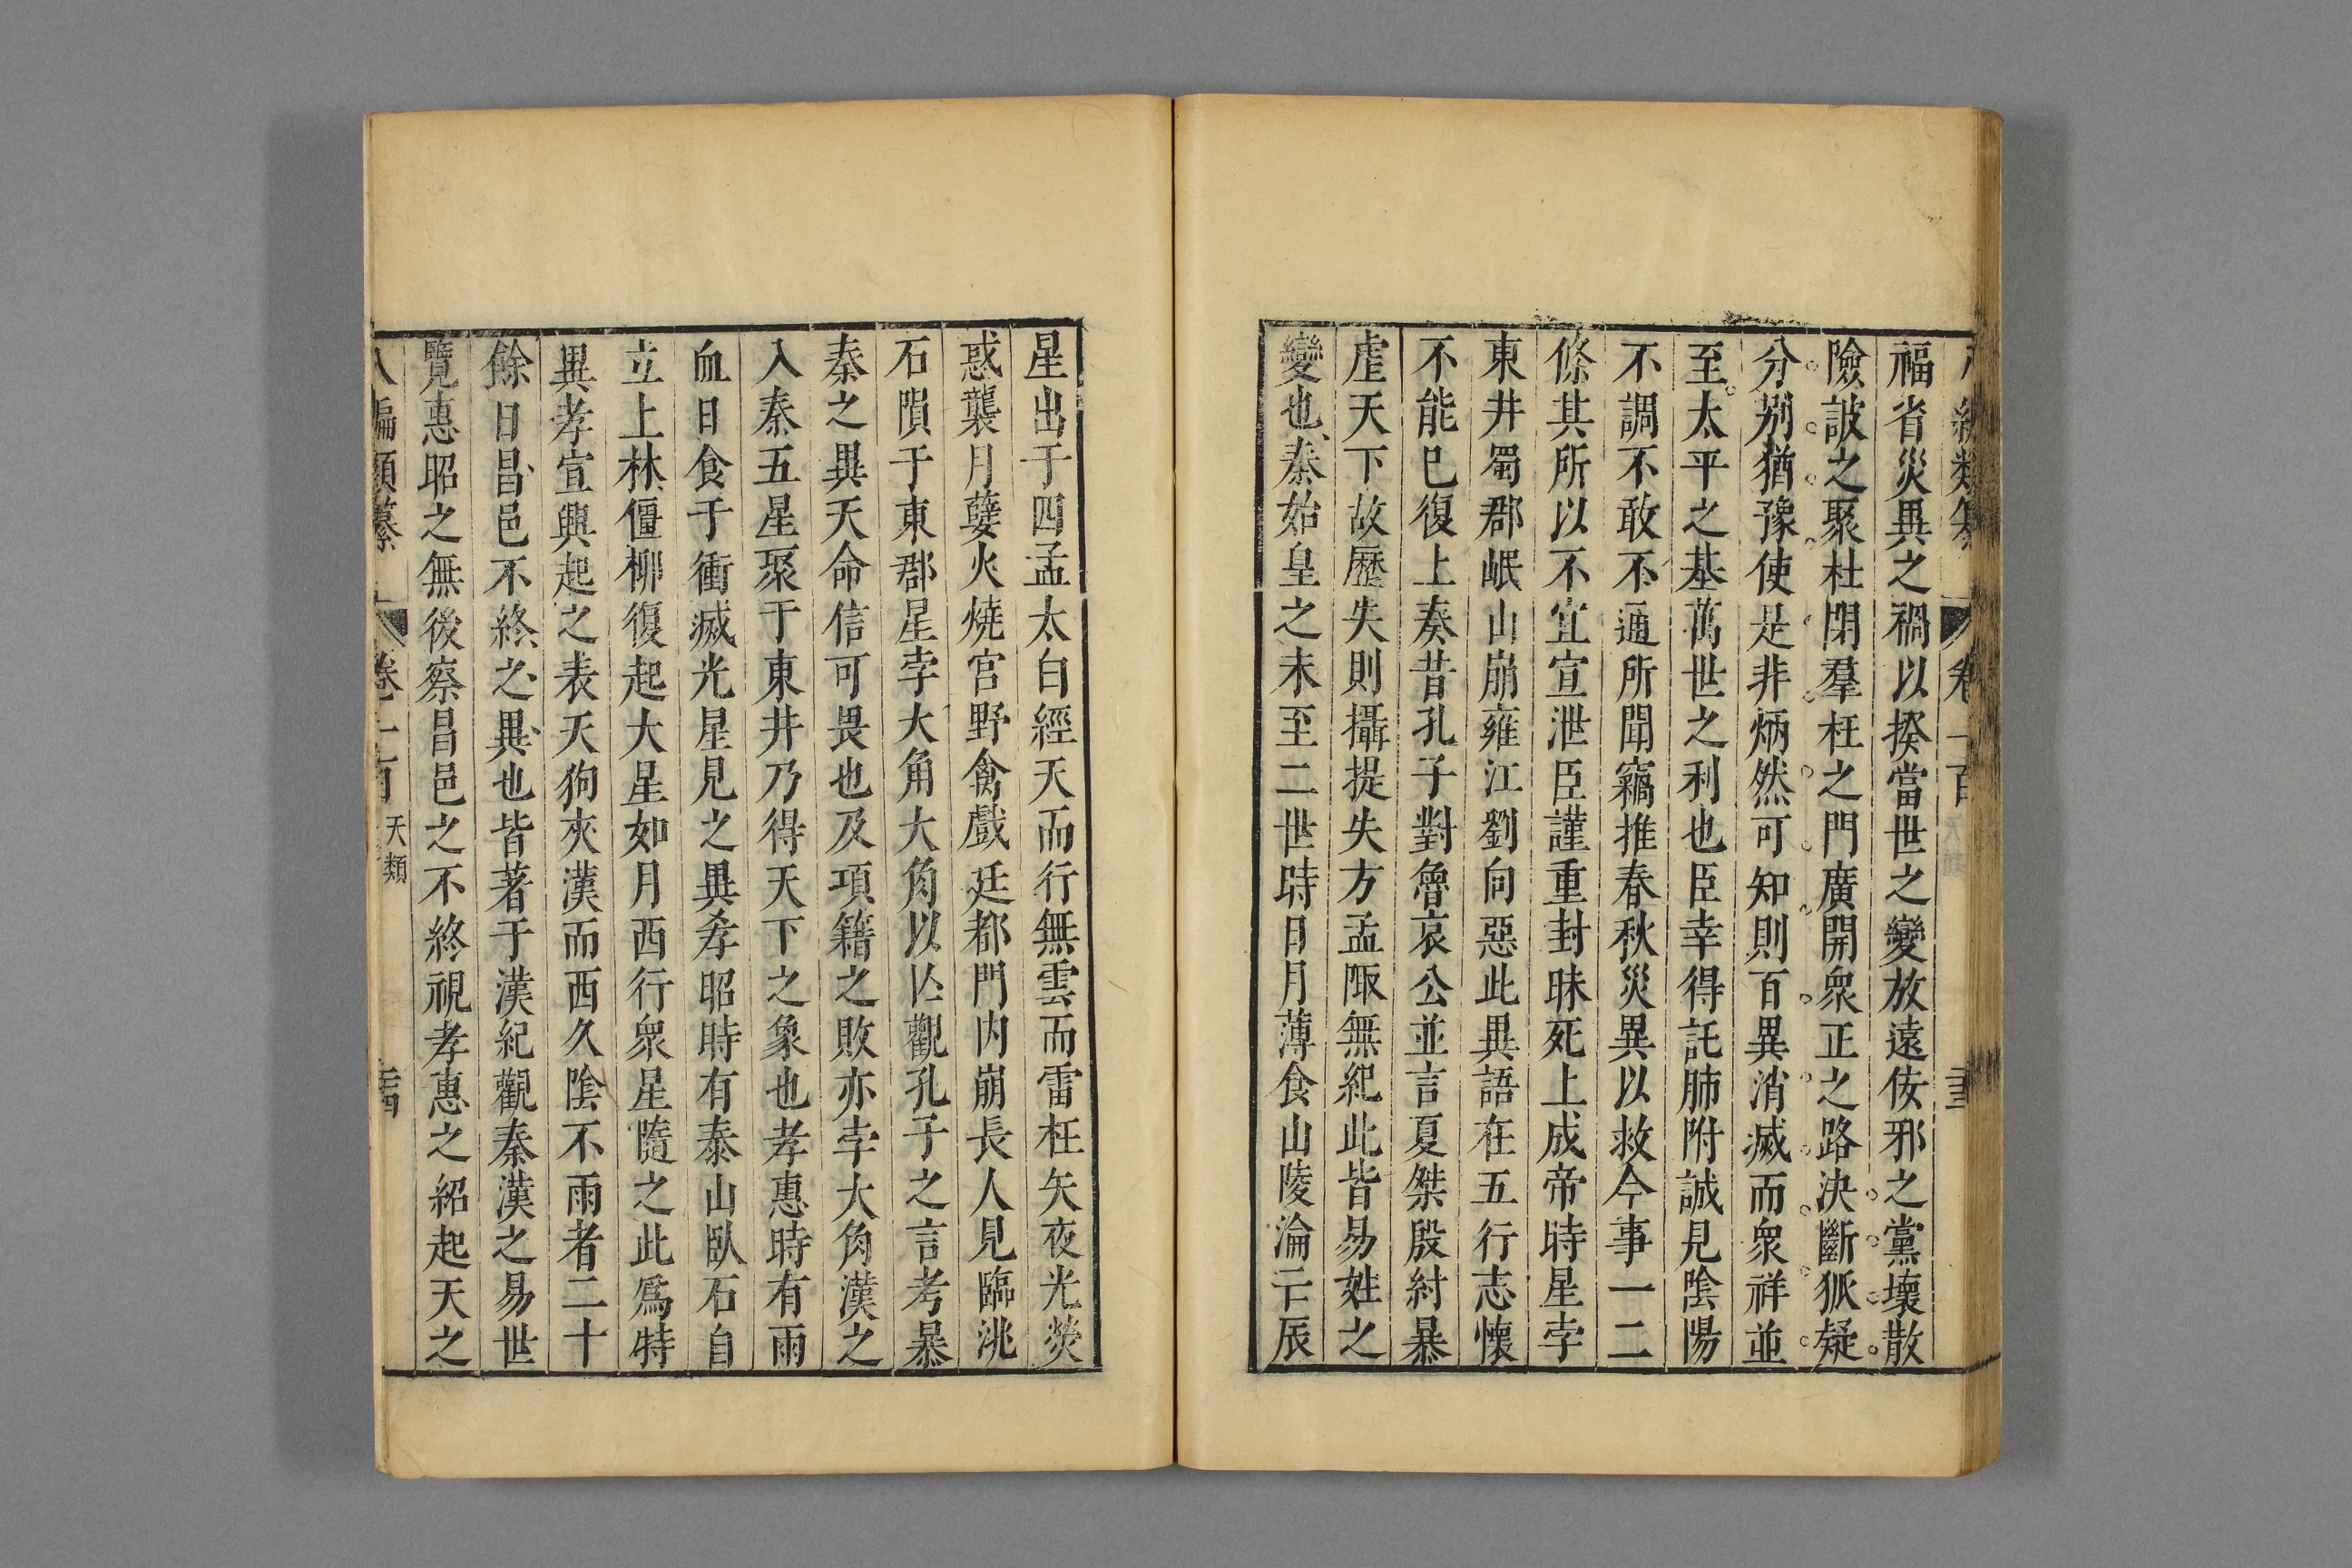 福省災異之禍以揆當世之變放遠佞邪之黨壞散
險詖之聚杜閉羣枉之門廣開衆正之路決斷狐疑
分别猶豫使是非炳然可知則百異消滅而衆祥並
至太平之基萬世之利也臣幸得託肺附誠見陰陽
不調不敢不通所聞竊推春秋災異以救今事一二
條其所以不宜宣泄臣謹重封昧死上成帝時星孛
東井蜀郡岷山崩雍江劉向惡此異語在五行志懷
不能已復上奏昔孔子對魯哀公並言夏桀殷紂暴
虐天下故歷失則攝提失方孟陬無紀此皆易姓之
變也秦始皇之末至二世時日月薄食山陵淪亡辰
星出于四孟太白經天而行無雲而雷枉矢夜光熒
惑襲月孽火燒宫野禽戲廷都門内崩長人見臨洮
石隕于東郡星孛大角大角以亾觀孔子之言考暴
秦之異天命信可畏也及項籍之敗亦孛大角漢之
入秦五星聚于東井乃得天下之象也孝惠時有雨
血日食于衝滅光星見之異孝昭時有泰山臥石自
立上林僵柳復起大星如月西行衆星隨之此爲特
異孝宣興起之表天狗夾漢而西久陰不雨者二十
餘日昌邑不終之異也皆著于漢紀觀秦漢之易世
覽惠昭之無後察昌邑之不終視孝惠之紹起天之
八編類纂 卷一百 天類